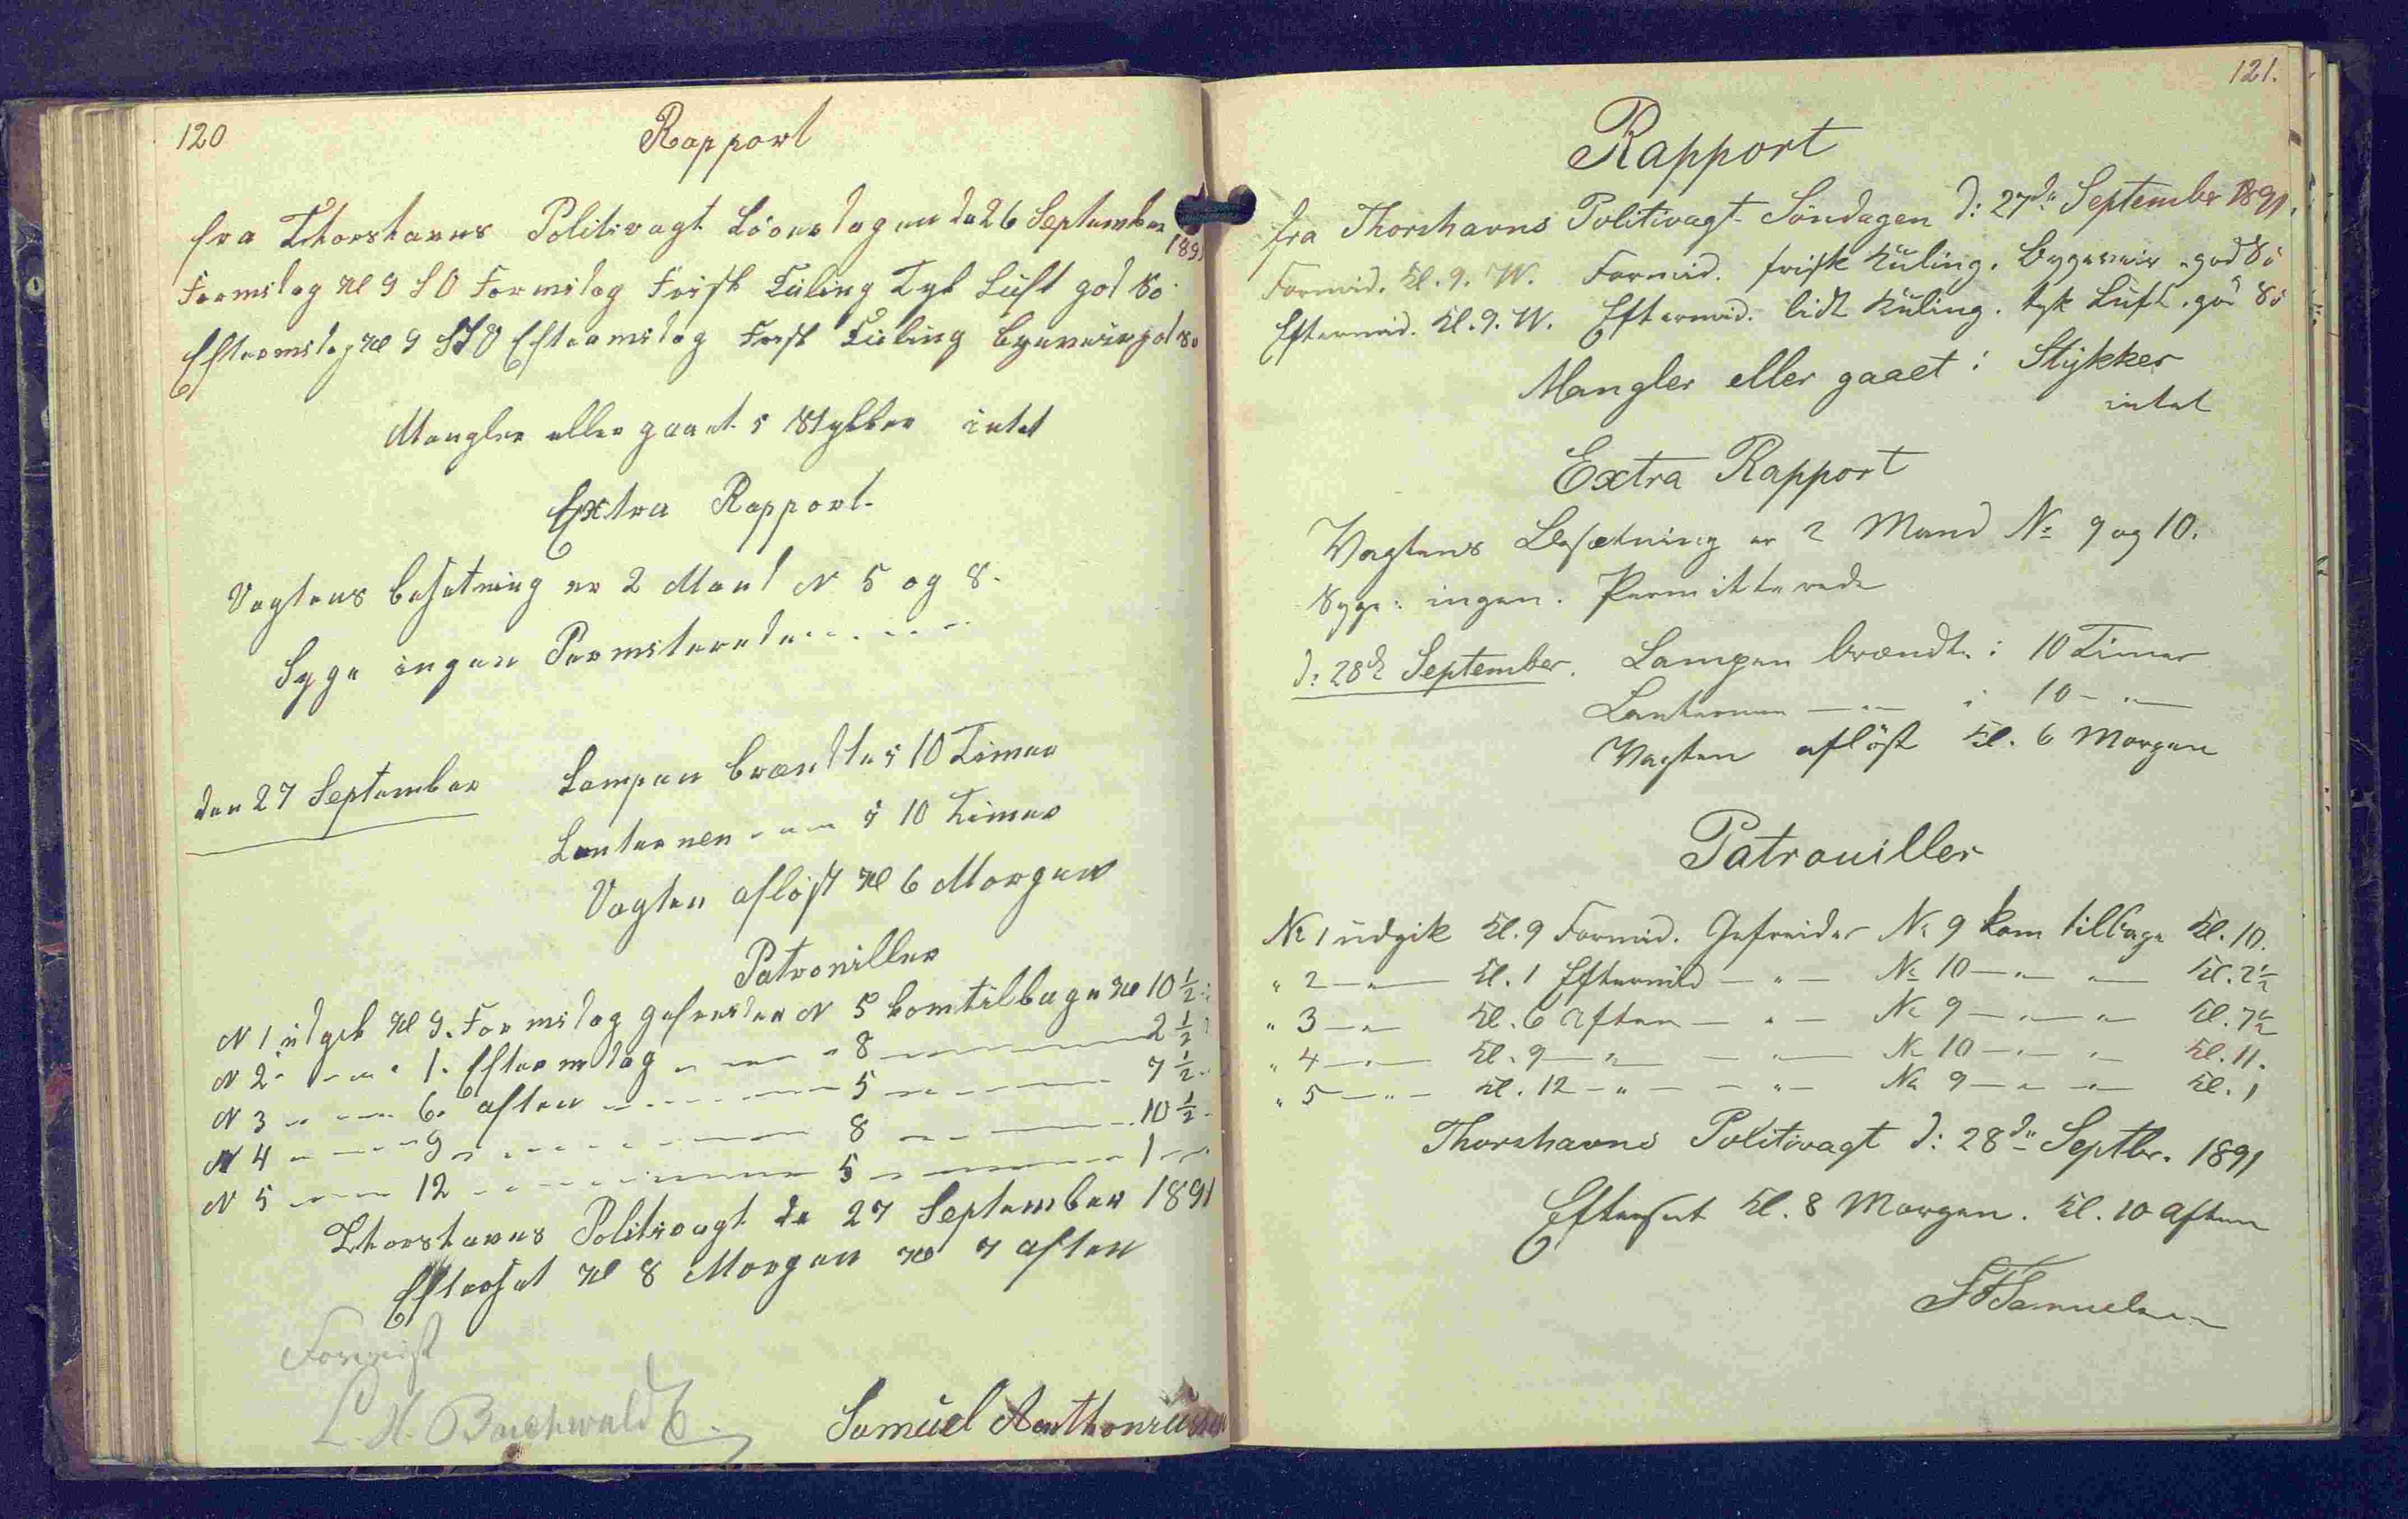 120
Rapport
fra Thorshavns Politivagt Löverdagen de 26 September
1891
Formidag Kl 9 S O Formidag Frisk Kuling Tyk Luft god Sö
Eftermidag Kl 9 SSO Eftermidag Frisk Kuling byeveir god Sö
Mangler eller gaaet i Stykker intet
Extra Rapport
Vagtens besetning er 2 Mand N 5 og 8.
Syge ingen Permiterede
den 27 September Lampen brændte i 10 Timer
Lanternen - " - i 10 Timer
Vagten aflöst Kl 6 Morgen
Patrouiller
N 1 udgik Kl 9. Formidag gefreider N 5 kom tilbage Kl 10 ½
N 2 - " - 1. Eftermidag - " - 8 - " - 2 ½
N 3 - " - 6. aften - " - 5 - " - 7 ½
N 4 - " - 9 - " - 8 - " - 10 ½
N 5 - " - 12 - " - 5 - " - 1
Thorshavns Politivagt de 27 September 1891
Efterset Kl 8 Morgen Kl 7 aften
Forevist
L. H. Buchwaldt
Samuel Anthoniussen
121.
Rapport
fra Thorshavns Politivagt Söndagen d: 27de September 1891.
Formid. Kl. 9. W. Formid. frisk Kuling. Bygeveir. god Sö
Eftermid. Kl. 9. W. Eftermid. lidt Kuling. tyk Luft. god Sö
Mangler eller gaaet i Stykker
intet
Extra Rapport
Vagtens Besætning er 2 Mand No 9 og 10.
Syge: ingen. Permitterede
d: 28de September. Lampen brændte i 10 Timer
Lanternen — " — i 10 - " —
Vagten aflöst Kl. 6 Morgen
Patrouiller
No 1 udgik Kl. 9 Formid. Gefreider No 9 kom tilbage Kl. 10.
" 2 — " — Kl. 1 Eftermid — " — No 10 — " — " — Kl. 2½
" 3 — " — Kl. 6 Aften — " — No 9 — " — " — Kl. 7½
" 4 — " — Kl. 9 — " — — " — No 10 — " — " — Kl. 11.
" 5 — " — Kl. 12 — " — — " — No 9 — " — " — Kl. 1
Thorshavns Politivagt d: 28de Septbr. 1891
Efterset Kl. 8 Morgen. Kl. 10 Aften
Samuelsen